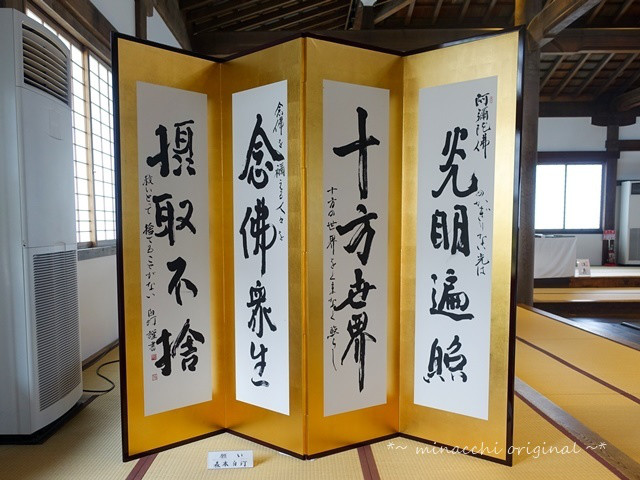 阿彌陀佛
光明遍照
のかぎりない光は
十方世界
十方の世界をくまなく照らし
念佛を稱える人々を
念佛衆生
攝取不捨
救いとって捨てることがない
願い
*~ minacchi original ~*